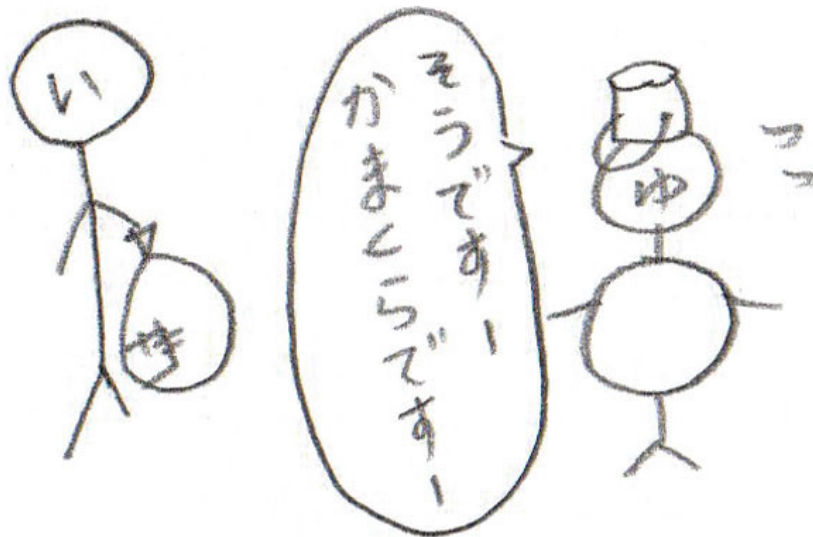 ゆ
そうですー
かまくらですー
い